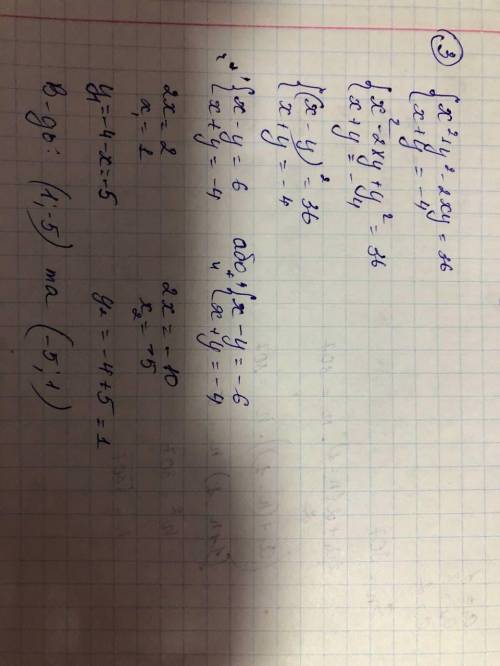 ③ { x² + y² - 2xy = 36
{ x + y = -4
{ x² - 2xy + y² = 36
{ x + y = -4
{ (x - y)² = 36
{ x + y = -4
{ x - y = 6 або { x - y = -6
{ x + y = -4 { x + y = -4
2x = 2 2x = -10
x₁ = 1 x₂ = -5
y₁ = -4 - x = -5 y₂ = -4 + 5 = 1
В-дь: (1; -5) та (-5; 1)